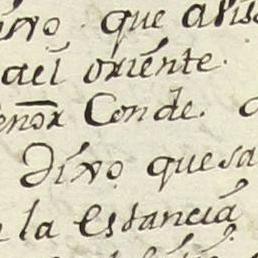 que avis
ael oriente.
enor Conde.
Dixo que sa
e la Estancia